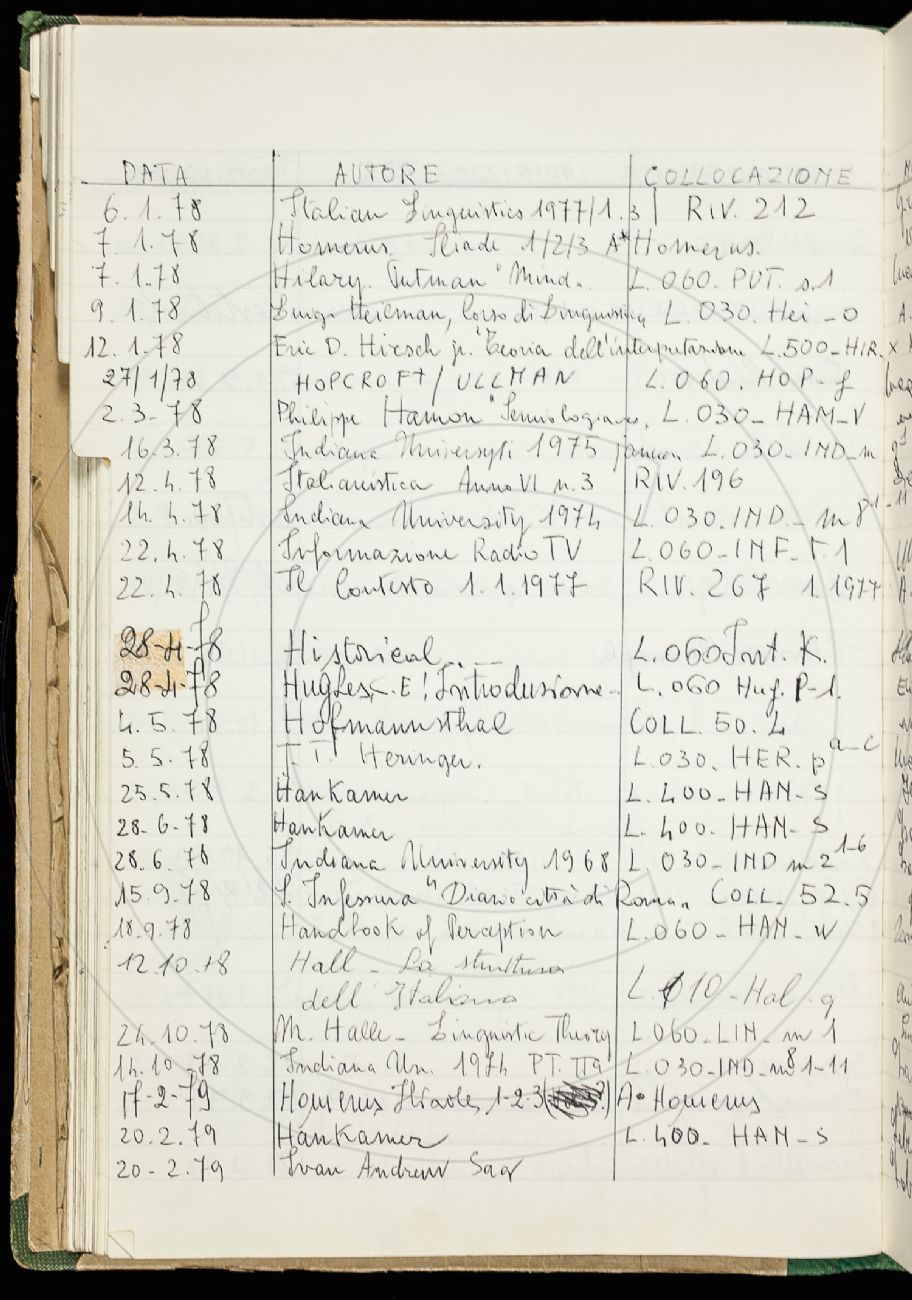 DATA AUTORE COLLOCAZIONE
6.1.78 Italian Linguistics 1977/1.3 RIV. 212
7.1.78 Homerus. Iliade 1/2/3 A* Homerus.
7.1.78 Hilary. Putman "Mind.. L.060. PUT. s.1
9.1.78 Luigi Heilman, Corso di Linguistica L.030. Hei - O
12.1.78 Eric D. Hirsch jr. "Teoria dell'interpretazione L.500-HIR.
27/1/78 HOPCROFT / ULLMAN L.060. HOP-f
2.3-78 Philippe Hamon "Semiologia L.030-HAM-V
16.3.78 Indiana 1975 L.030-IND-m
12.4.78 Italianistica Anno VI n.3 RIV.196
14.4.78 Indiana University 1974 L.030.IND-m 8 1-11
22.4.78 Informazione Radio TV L.060-INF-
22.4.78 Il Contesto 1.1.1977 RIV. 267 1.1977
28-4-78 Historical.... L.060 Int. K.
28-4-78 Hughes. E! Introdusione- L.060 Hug. P-1.
4.5.78 Hofmannsthal COLL. 50. 4
5.5.78 Heringer. L.030. HER. p a-c
25.5.78 HanKamer L.400-HAN-S
28-6-78 HanKamer L.400-HAN-S
28.6.78 Indiana University 1968 L.030-IND m 2 1-6
15.9.78 S. Infessura "Diario città di Roma" COLL. 52.5
18.9.78 Handbook of Perception L.060-HAN-w
12.10.78 Hall - La struttura
dell'Italiano L.010-Hal-g
24.10.78 M. Halle - Linguistic Theory L060-LIN-m 1
14.10-78 Indiana Un. 1974 PT. L.030-IND-m 8 1-11
17-2-79 Homerus Iliade, 1-2-3 A• Homerus
20.2.79 HanKamer L.400-HAN-S
20-2.79 Ivan Andrew Sag